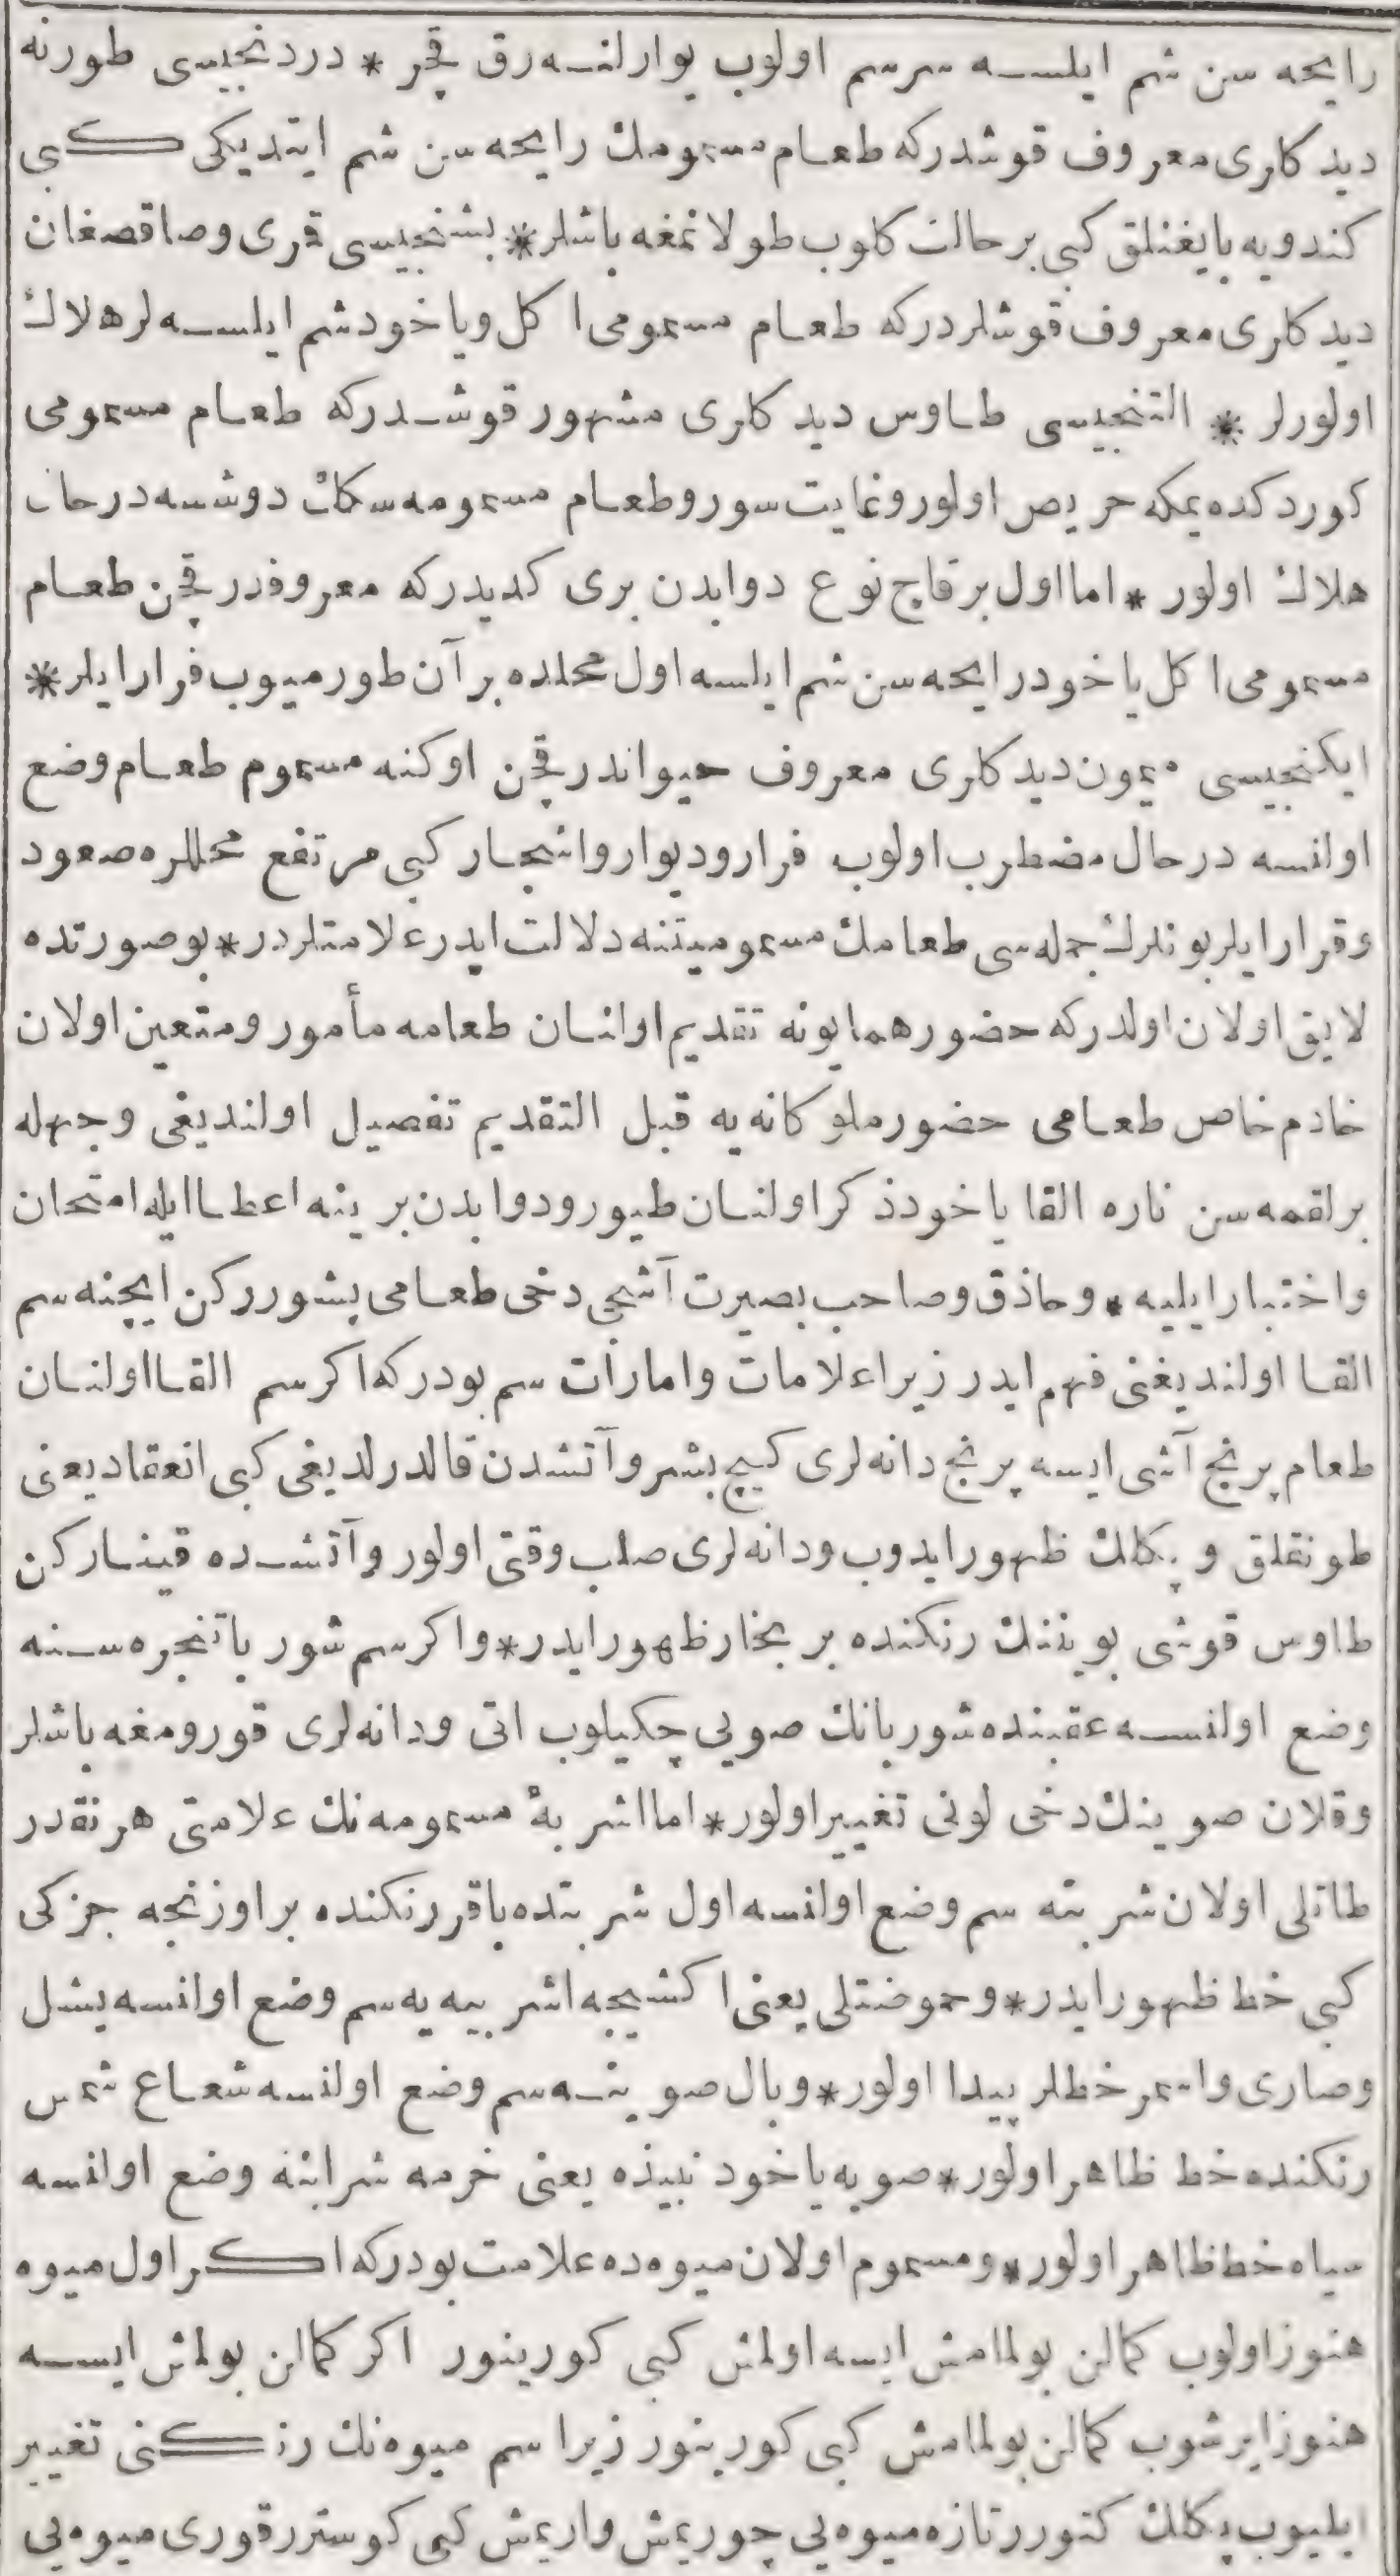 رایحه سن شم ایلسه سرسم اولوب یوارلنه رق قچر * دردنجیسی طورنه
دید کلری معروف قوشدرکه طعام مسمومك رایحه سن شم ایتدیکی کبی
کندویه بایغنلق کبی بر حالت کلوب طولانمغه باشلر * بشنجیسی قمری وصاقصغان
دید کلری معروف قوشلردرکه طعام مسمومی اکل ویاخود شم ایلسه لر هلاك
اولورلر * التنجیسی طاوس دید کلری مشهور قوشدرکه طعام مسمومی
کوردکده یمکه حریص اولور ونمایت سور وطعام مسمومه سکك دوشسه درحال
هلاك اولور * اما اول برقاج نوع دوابدن بری کدیدرکه معروفدر قچن طعام
مسمومی اکل یاخود رایحه سن شم ایلسه اول محلده بر آن طورمیوب فرار ایلر *
ایکنجیسی میمون دید کلری معروف حیواندر قچن اوکنه مسموم طعام وضع
اولنسه درحال مضطرب اولوب فرار ودیوار واشجار کبی مرتفع محللره صعود
وقرار ایلر بونلرك جمله سی طعامك مسمومیتنه دلالت ایدر علامتلردر * بوصورتده
لایق اولان اولدرکه حضور همایونه تقدیم اولنان طعامه مأمور ومتعین اولان
خادم خاص طعامی حضور ملوکانه یه قبل التقدیم تفصیل اولندیغی وجهله
بر لقمه سن ناره القا یاخود ذکر اولنان طیور ودوابدن برینه اعطا ایله امتحان
واختبار ایلیه * وحاذق وصاحب بصیرت آشجی دخی طعامی پشوررکن ایچنه سم
القا اولندیغنی فهم ایدر زیرا علامات وامارات سم بودرکه اکر سم القا اولنان
طعام پرنج آشی ایسه پرنج دانه لری کیچ بشر وآتشدن قالدرلدیغی کبی انعقاد یعنی
طونقلق و پکلك ظهور ایدوب ودانه لری صلب وقتی اولور وآتشده قینارکن
طاوس قوشی بوینك رنکنده بر بخار ظهور ایدر * واکر سم شوربا تنجره سنه
وضع اولنسه عقبنده شوربانك صویی چکیلوب اتی ودانه لری قورومغه باشلر
وقلان صوینك دخی لونی تغییر اولور * اما اشربۀ مسمومه نك علامتی هر نقدر
طاتلی اولان شربته سم وضع اولنسه اول شربتده باقر رنکنده بر اوزنجه جزکی
کبی خط ظهور ایدر * وحموضتلی یعنی اکشیجه اشربیه یه سم وضع اولنسه یشل
وصاری واسمر خطلر پیدا اولور * وبال صوینه سم وضع اولنسه شعاع شمس
رنکنده خط ظاهر اولور * صویه یاخود نبیذه یعنی خرمه شرابنه وضع اولنسه
سیاه خط ظاهر اولور * ومسموم اولان میوه ده علامت بودرکه اکر اول میوه
هنوز اولوب کمالن بولمامش ایسه اولمش کبی کورینور اکر کمالن بولمش ایسه
هنوز ایرشوب کمالن بولمامش کبی کورینور زیرا سم میوه نك رنکنی تغییر
ایلیوب پکلك کتورر تازه میوه یی چوریمش واریمش کبی کوسترر قوری میوه یی